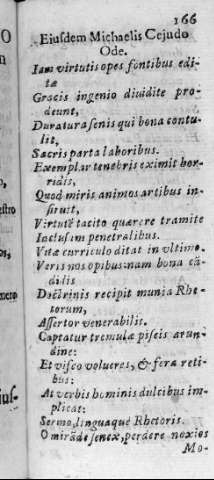 166
Eiusdem Michaelis Cejudo
Ode.
Iam virtutis opes fontibus edi-
tæ
Gracis ingenio diuidite pro-
deunt,
Duratura senis qui bona contu-
lit,
Sacris parta laboribus.
Exemplar tenebris eximit hor-
ridis,
Quod miris animos artibus in-
struit,
Virtutē tacito quærere tramite
Inclusam penetralibus.
Vitæ curriculo ditat in vltimo.
Veris nos opibus: nam bona cā-
didis
Doctrinis recipit munia Rhe-
torum,
Assertor venerabilis.
Captatur tremula piscis arun-
dine:
Et visco volucres, & fera reti-
bus:
At verbis hominis dulcibus im-
plicat:
Sermo, linguaque Rhetoris.
O mirāde senex, perdere noxios
Mo-